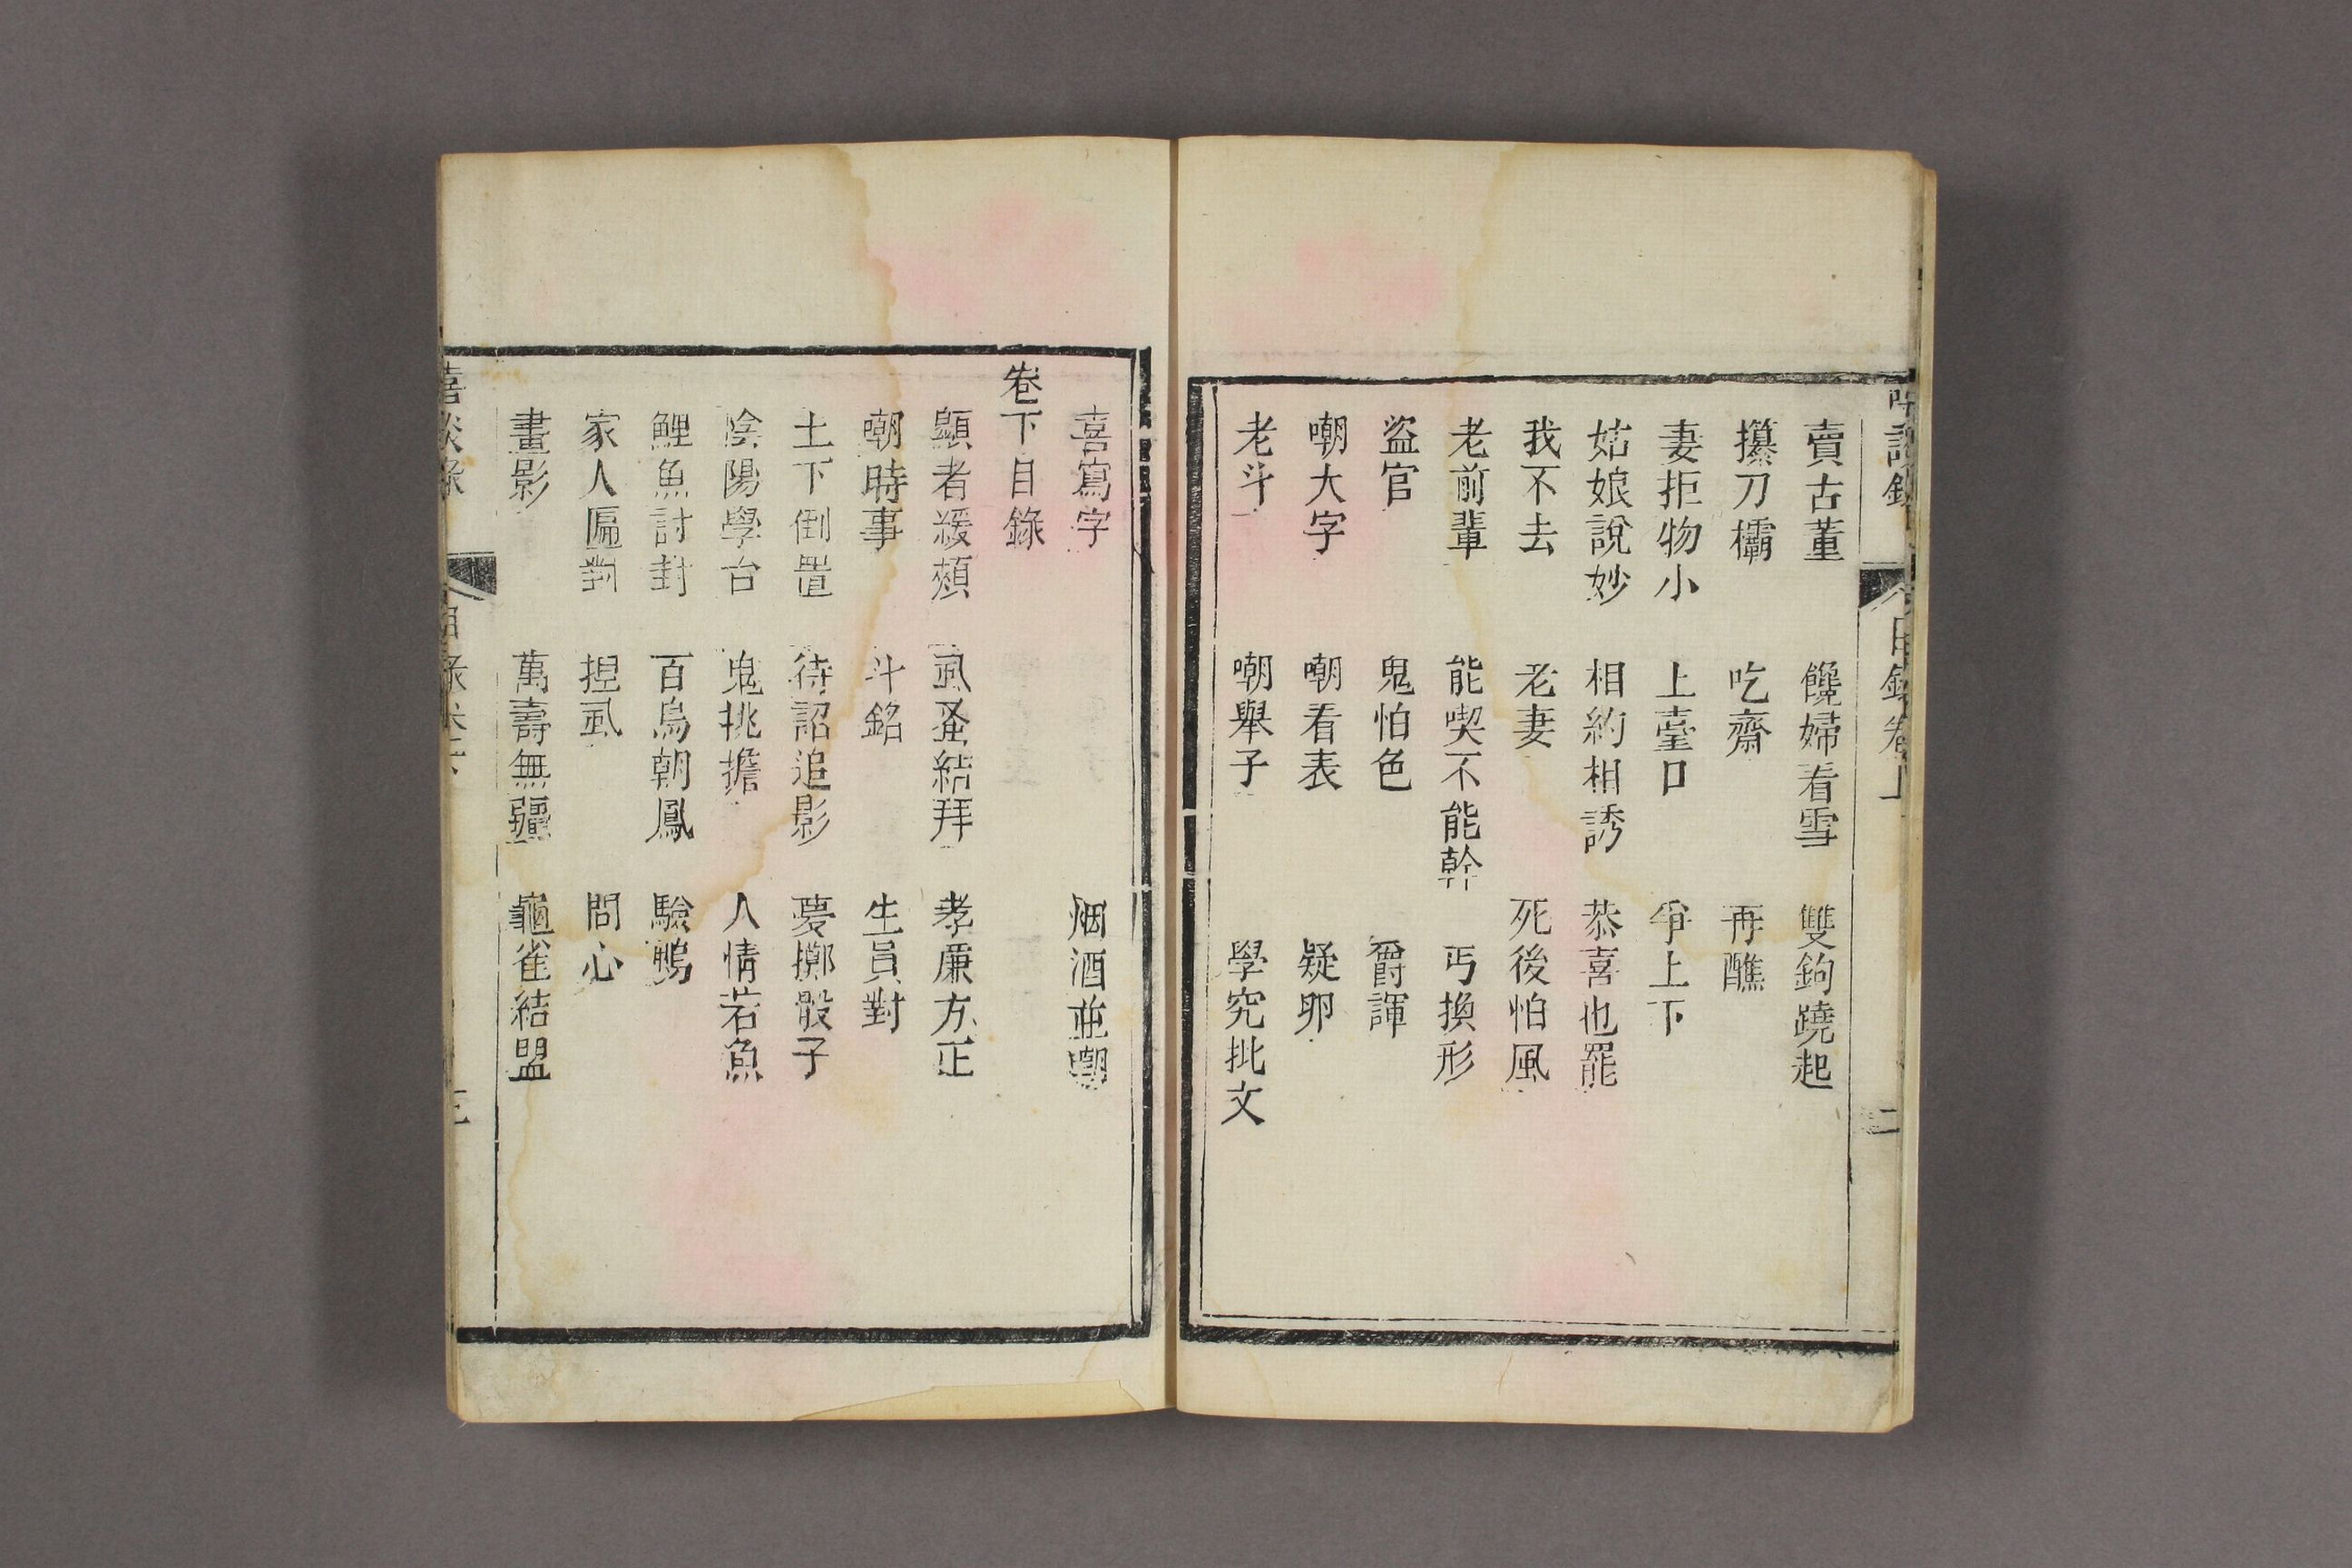 賣古董 饞婦看雪 雙鉤蹺起
攥刀欛 吃齋 再醮
妻拒物小 上臺口 爭上下
姑娘說妙 相約相誘 恭喜也罷
我不去 老妻 死後怕風
老前輩 能喫不能幹 丐換形
盜官 鬼怕色 爵諢
嘲大字 嘲看表 疑卵
老斗 嘲舉子 學究批文
目錄卷上
二
喜寫字 烟酒並嘲
卷下目錄
顯者緩頰 虱蚤結拜 孝廉方正
嘲時事 斗銘 生員對
土下倒置 待詔追影 夢擲骰子
陰陽學台 鬼挑擔 人情若魚
鯉魚討封 百鳥朝鳳 驗鴨
家人匾對 捏虱 問心
畫影 萬壽無疆 龜雀結盟
喜談錄 目錄卷下
三